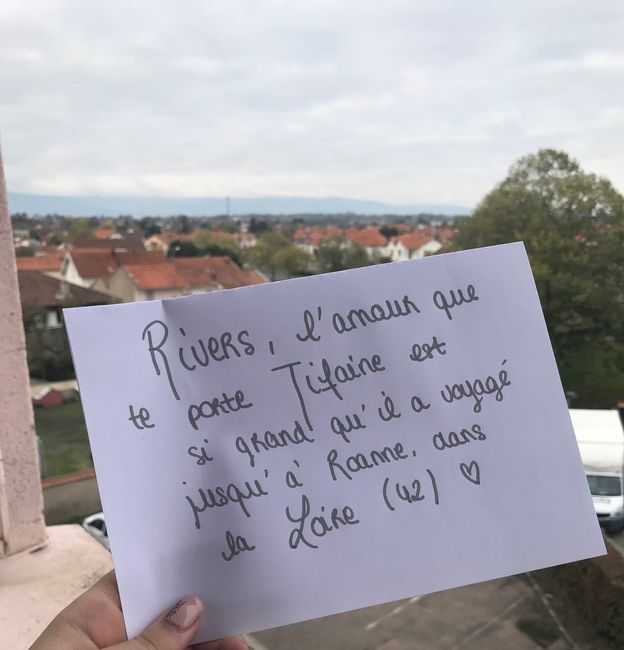 Rivers, l'amour que
te porte Tifaine est
si grand qu'il a voyagé
jusqu'à Roanne, dans
la Loire (42) ♡